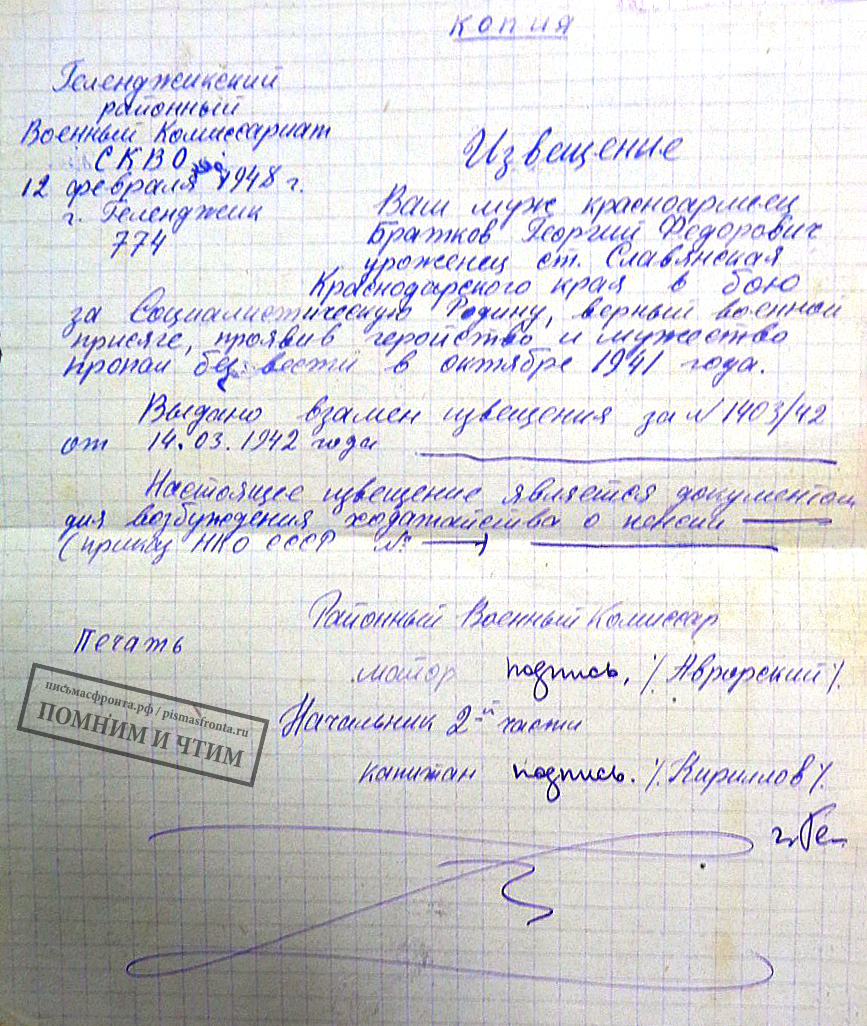 копия
Геленджикский
районный
Военный Комиссариат
СКВО
12 февраля 1948 г.
г. Геленджик
774
Извещение
Ваш муж красноармеец
Братков Георгий Федорович
уроженец ст. Славянская
Краснодарского края в бою
за Социалистическую Родину, верный военной
присяге, проявив геройство и мужество
пропал без вести в октябре 1941 года.
Выдано взамен извещения за N 1403/42
от 14.03.1942 года
Настоящее извещение является документом
для возбуждения ходатайства о пенсии
(приказ НКО СССР № —)
Районный Военный Комиссар
Печать
майор подпись. /Аврорский/.
Начальник 2-й части
капитан подпись. /Кириллов/.
г. Ге
письмасфронта.рф / pismasfronta.ru
ПОМНИМ И ЧТИМ